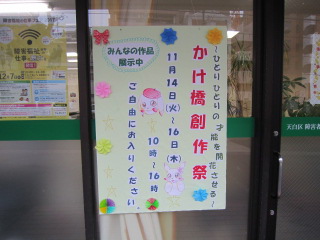 ～ひとりひとりの才能を開花させる～
かけ橋創作祭
11月14日(火)～16日(木)
10時～16時
ご自由にお入りください
みんなの作品
展示中
障害福祉の
仕事
12月7日
天白区 障害者